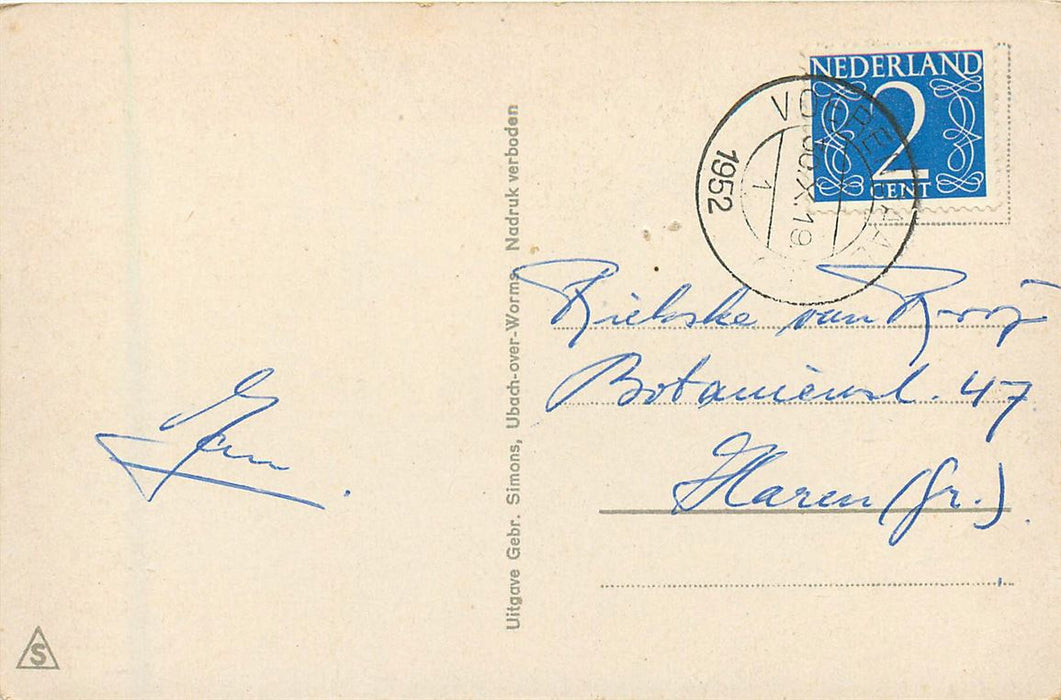 Jan.
Uitgave Gebr. Simons, Ubach-over-Worms. Nadruk verboden
NEDERLAND
2
CENT
1952
Riekske van Rooij
47
Haren (Gr.).
S